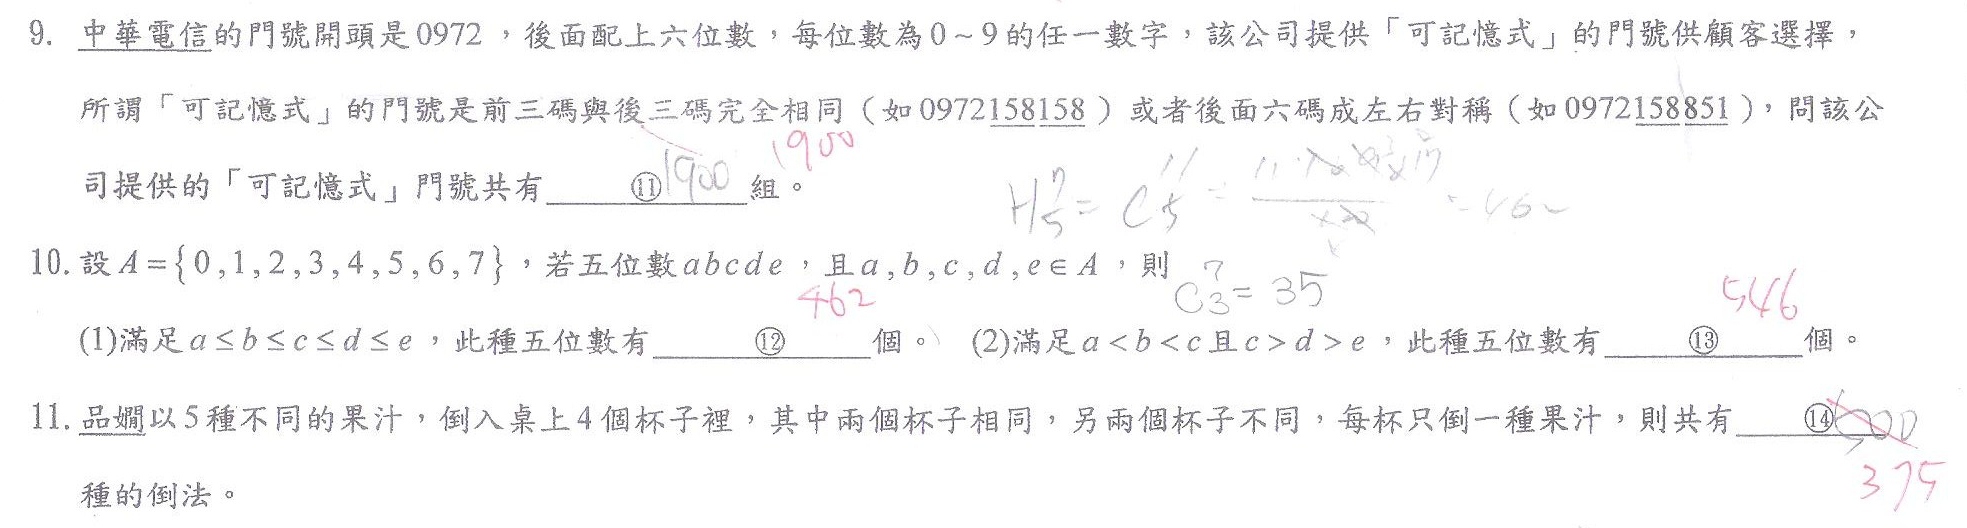 9. 中華電信的門號開頭是0972，後面配上六位數，每位數為0~9的任一數字，該公司提供「可記憶式」的門號供顧客選擇，
所謂「可記憶式」的門號是前三碼與後三碼完全相同（如0972158158）或者後面六碼成左右對稱（如0972158851），問該公
1900
司提供的「可記憶式」門號共有 ⑪ 1900 組。
H⁷₅= C¹¹₅ = = 462
10. 設A={0,1,2,3,4,5,6,7}，若五位數abcde，且a,b,c,d,e∈A，則
C⁷₃= 35
462
546
(1)滿足a≤b≤c≤d≤e，此種五位數有 ⑫ 個。 (2)滿足a<b<c且c>d>e，此種五位數有 ⑬ 個。
11. 品嫺以5種不同的果汁，倒入桌上4個杯子裡，其中兩個杯子相同，另兩個杯子不同，每杯只倒一種果汁，則共有 ⑭
375
種的倒法。